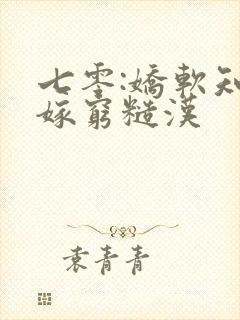 七零:嬌軟知
嫁窮糙漢
袁青青